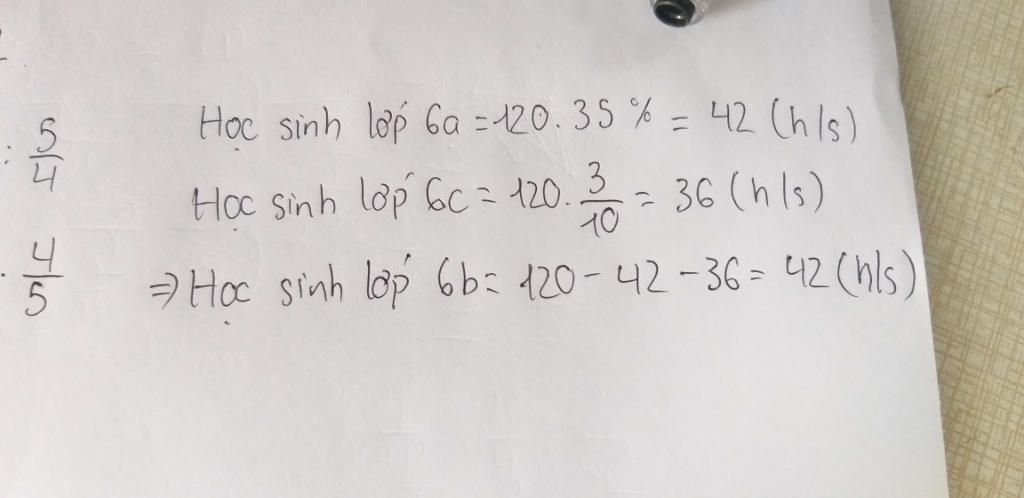 : 5/4
Học sinh lớp 6a = 120 . 35 % = 42 (h/s)
Học sinh lớp 6c = 120 . 3/10 = 36 (h/s)
. 4/5
⇒ Học sinh lớp 6b = 120 - 42 - 36 = 42 (h/s)